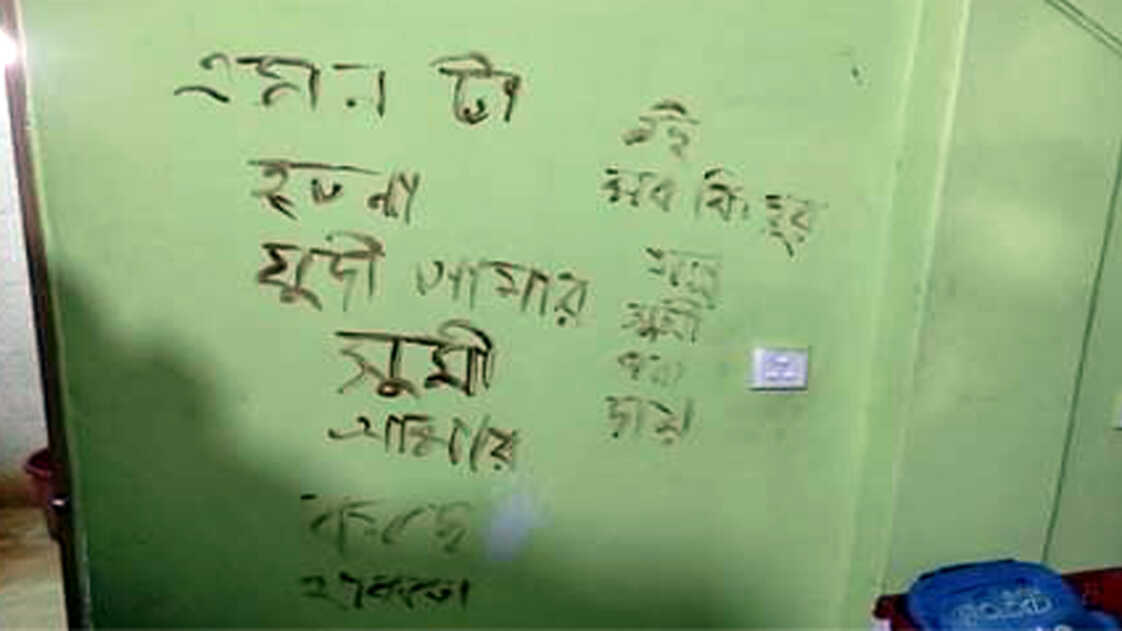 এমন টা
হত না
যুদী আমার
সুমী
আমার
কাছে
থাকতো
এই
সব কিছুর
জন্য
সুমী
দায়